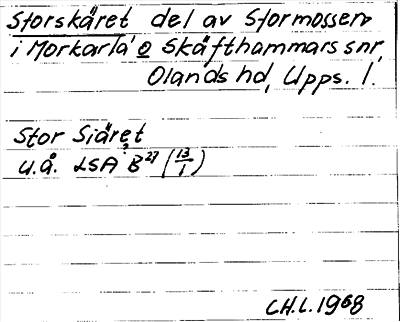 Storskäret del av Stormossen
i Morkarla o Skäfthammars snr,
Olands hd, Upps. l.
Stor Siäret
u.å. LSA B27 (13/1)
C.H.L. 1968